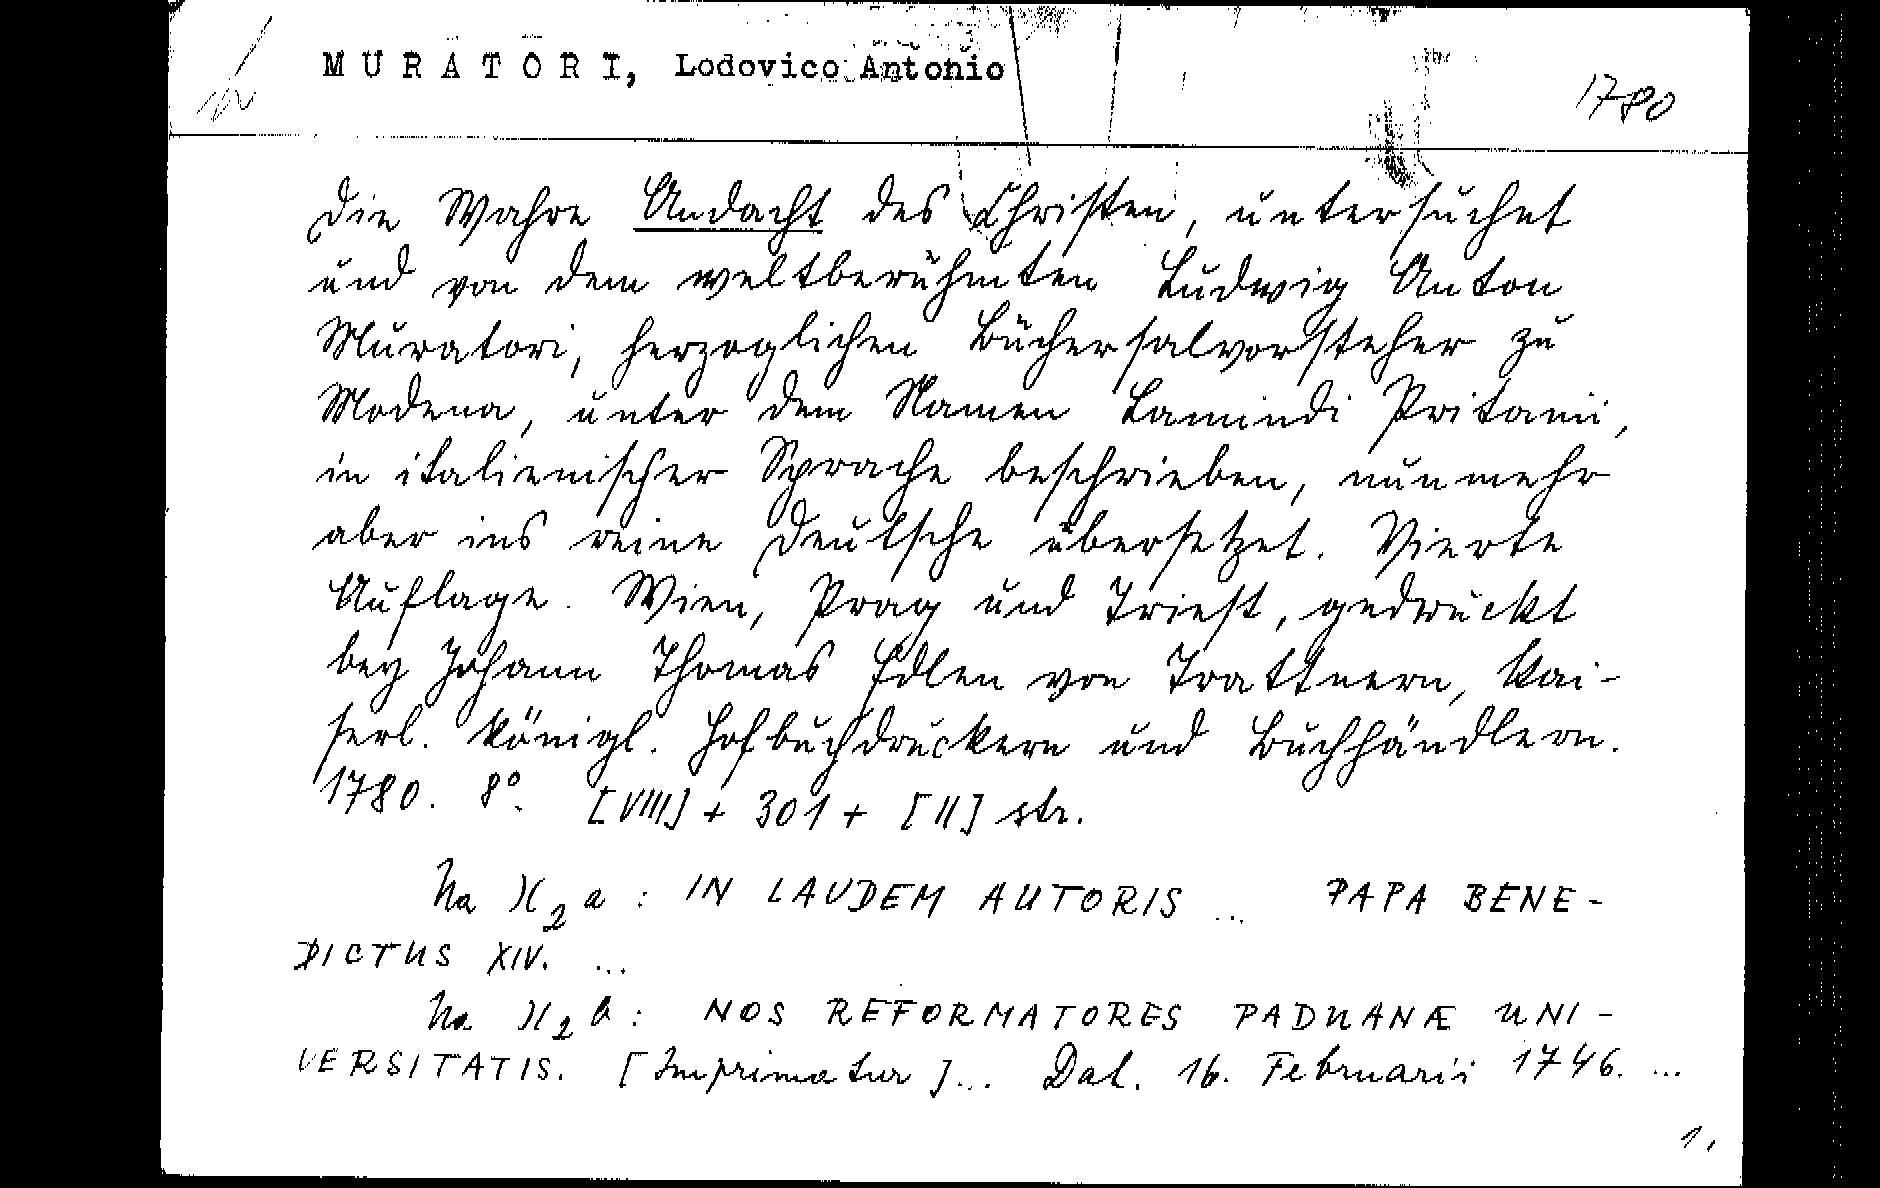 MURATORI, Lodovico Antonio
1780
Die Wahre Andacht des Christen, untersuchet
und von dem weltberühmten Ludwig Anton
Muratori, herzoglichen Büchersalvorsteher zu
Modena, unter dem Namen Lamindi Pritanii,
in italienischer Sprache beschrieben, nunmehr
aber ins reine Deutsche übersetzet. Vierte
Auflage. Wien, Prag und Triest, gedruckt
bey Johann Thomas Edlen von Trattnern, kai-
serl. königl. Hofbuchdruckern und Buchhändlern.
1780. 8°. [VIII] + 301 + [II] str.
Na )(2a : IN LAUDEM AUTORIS ... PAPA BENE-
DICTUS XIV. ...
Na )(2b : NOS REFORMATORES PADUANÆ UNI-
VERSITATIS. [Imprimatur]... Dat. 16. Februarii 1746. ...
1,